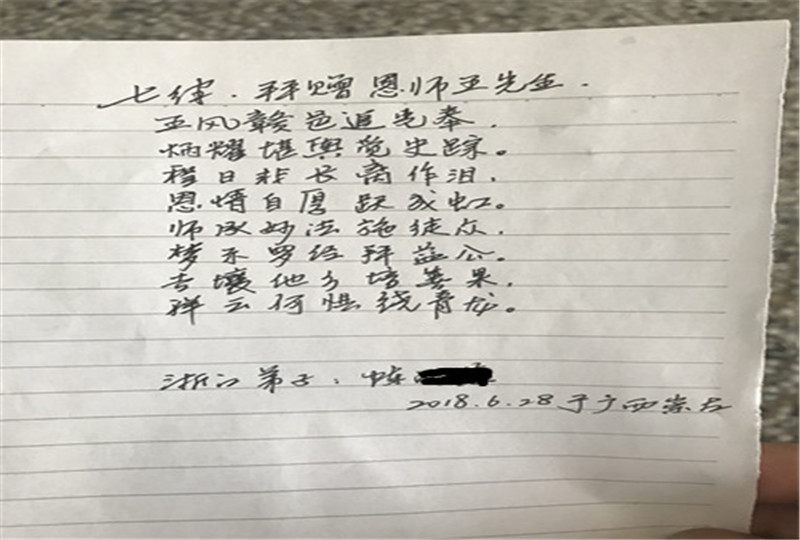 七律.拜赠恩师王先生.
王风赣邑追先奉.
炳耀堪舆觉史踪。
稽日非长离作泪.
恩情自厚跃成虹。
师承妙法施徒众.
梦示罗经拜益公.
吉壤他乡培善果.
祥云何惜绕青龙。
浙江弟子:
2018.6.28于广西崇左